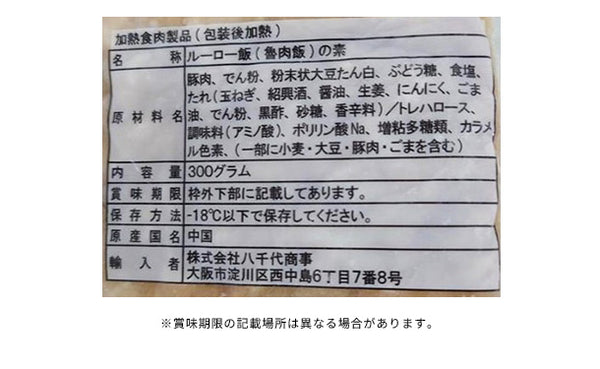 加熱食肉製品(包装後加熱)
名称 ルーロー飯(魯肉飯)の素
原材料名 豚肉、でん粉、粉末状大豆たん白、ぶどう糖、食塩、
たれ(玉ねぎ、紹興酒、醤油、生姜、にんにく、ごま
油、でん粉、黒酢、砂糖、香辛料)／トレハロース、
調味料(アミノ酸)、ポリリン酸Na、増粘多糖類、カラメ
ル色素、(一部に小麦・大豆・豚肉・ごまを含む)
内容量 300グラム
賞味期限 枠外下部に記載してあります。
保存方法 -18℃以下で保存してください。
原産国名 中国
輸入者 株式会社八千代商事
大阪市淀川区西中島6丁目7番8号
※賞味期限の記載場所は異なる場合があります。